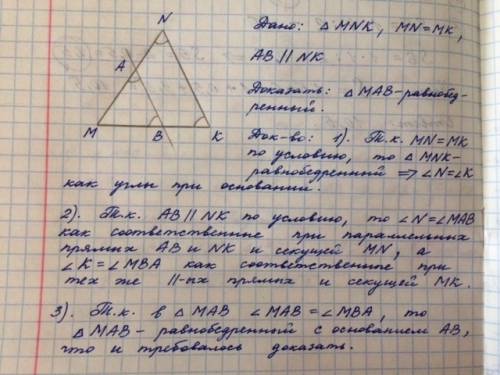 N
A
M
B
K
Дано: △ MNK, MN = MK,
AB || NK
Доказать: △ MAB - равнобед-
ренный.
Док-во: 1). Т.к. MN = MK
по условию, то △ MNK -
равнобедренный ⟹ ∠N = ∠K
как углы при основании.
2). Т.к. AB || NK по условию, то ∠N = ∠MAB
как соответственные при параллельных
прямых AB и NK и секущей MN, а
∠K = ∠MBA как соответственные при
тех же ||-ых прямых и секущей MK.
3). Т.к. в △ MAB ∠MAB = ∠MBA, то
△ MAB - равнобедренный с основанием AB,
что и требовалось доказать.